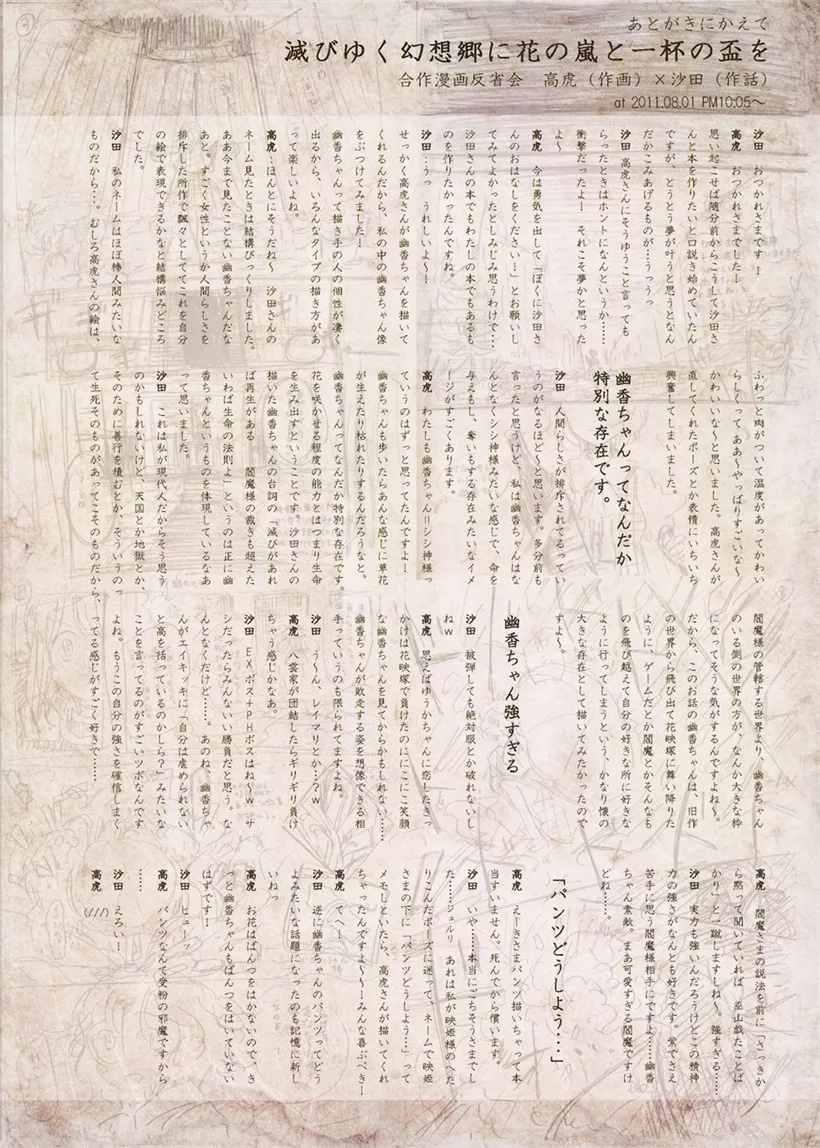 あとがきにかえて
滅びゆく幻想郷に花の嵐と一杯の盃を
合作漫画反省会　高虎（作画）×沙田（作話）
at 2011.08.01 PM10:05～
沙田　おつかれさまです！
高虎　おつかれさまでした！
思い起こせば随分前からこうして沙田さ
んと本を作りたいと口説き始めていたん
ですが、とうとう夢が叶うと思うとなん
だかこみあげるものが…うぅうっ
沙田　高虎さんにそうゆうこと言っても
らったときはホントになんというか……
衝撃だったよ！　それこそ夢かと思った
よ～
高虎　今は勇気を出して「ぼくに沙田さ
んのおはなしをください！」とお願いし
てみてよかったとしみじみ思うわけで…
沙田さんの本でもわたしの本でもあるも
のを作りたかったんですね。
沙田：うっ　うれしいよ～！
せっかく高虎さんが幽香ちゃんを描いて
くれるんだから、私の中の幽香ちゃん像
をぶつけてみました！
幽香ちゃんって描き手の人の個性が凄く
出るから、いろんなタイプの描き方があ
って楽しいよね。
高虎：ほんとにそうだね～　沙田さんの
ネーム見たときは結構びっくりしました。
ああ今まで見たことない幽香ちゃんだな
あと。すごく女性というか人間らしさを
排斥した所作で飄々としててこれを自分
の絵で表現できるかなと結構悩みどころ
でした。
沙田　私のネームはほぼ棒人間みたいな
ものだから…。むしろ高虎さんの絵は、
ふわっと肉がついて温度があってかわい
らしくって　ああ～やっぱりすごいな～
かわいいな～と思いました。高虎さんが
直してくれたポーズとか表情にいちいち
興奮してしまいました。
幽香ちゃんってなんだか
特別な存在です。
沙田　人間らしさが排斥されてるってい
うのがなるほど～と思います。多分前も
言ったと思うけど、私は幽香ちゃんはな
んとなくシシ神様みたいな感じで、命を
与えもし、奪いもする存在みたいなイメ
ージがすごくあります。
高虎　わたしも幽香ちゃん＝シシ神様っ
ていうのはずっと思ってたんですよ！
幽香ちゃんも歩いたらあんな感じに草花
が生えたり枯れたりするんだろうなと。
幽香ちゃんってなんだか特別な存在です。
花を咲かせる程度の能力とはつまり生命
を生み出すということです。沙田さんの
描いた幽香ちゃんの台詞の「滅びがあれ
ば再生がある　　閻魔様の裁きも超えた
いわば生命の法則よ」というのは正に幽
香ちゃんというものを体現しているなあ
って思いました。
沙田　これは私が現代人だからそう思う
のかもしれないけど、天国とか地獄とか、
そのために善行を積むとか、そういうのっ
て生死そのものがあってこそのものだから、
閻魔様の管轄する世界より、幽香ちゃん
のいる側の世界の方が、なんか大きな枠
になってそうな気がするんですよね～。
だから、このお話の幽香ちゃんは、旧作
の世界から飛び出て花映塚に舞い降りた
ように、ゲームだとか閻魔とかそんなも
のを飛び越えて自分の好きな所に好きな
ように行ってしまうという、かなり懐の
大きな存在として描いてみたかったので
すよ～。
幽香ちゃん強すぎる
沙田　被弾しても絶対服とか破れないし
ねw
高虎　思えばゆうかちゃんに恋したきっ
かけは花映塚で負けたのににこにこ笑顔
な幽香ちゃんを見てからかもしれない……
幽香ちゃんが敗走する姿を想像できる相
手っていうのも限られてますよね。
沙田　う～ん、レイマリとか…？w
高虎　八雲家が団結したらギリギリ負け
ちゃう感じかなあ。
沙田　EXボス+PHボスはね～w　サ
シだったらみんないい勝負だと思う。な
んとなくだけど……。あのね　幽香ちゃ
んがエイキッキに「自分は虐められない
と高を括っているのかしら？」みたいな
ことを言ってるのがすごいツボなんです
よね。もうこの自分の強さを確信しまく
ってる感じがすごく好きで……
高虎　閻魔さまの説法を前に「さっきか
ら黙って聞いていれば　巫山戯たことば
かり」と一蹴しますしね～。強すぎる……
沙田　実力も強いんだろうけどこの精神
力の強さがなんとも好きです。紫でさえ
苦手に思う閻魔様相手にですよ……幽香
ちゃん素敵。まあ可愛すぎる閻魔ですけ
どね……。
「パンツどうしよう…」
高虎　えーきさまパンツ描いちゃって本
当すいません。死んでから償います。
沙田　いや……本当にごちそうさまでし
た……ジュルリ　あれは私が映姫様のへた
りこんだポーズに迷って、ネームで映姫
さまの下に「パンツどうしよう…」って
メモしといたら、高虎さんが描いてくれ
ちゃったんですよ～～！みんな喜ぶべき！
高虎　てへー！
沙田　逆に幽香ちゃんのパンツってどう
よみたいな話題になったのも記憶に新し
いねっ
高虎　お花はぱんつをはかないので、き
っと幽香ちゃんもぱんつをはいていない
はずです！
沙田　ヒューッ
高虎　パンツなんて受粉の邪魔ですから
……
沙田　えろい！
高虎　(///)